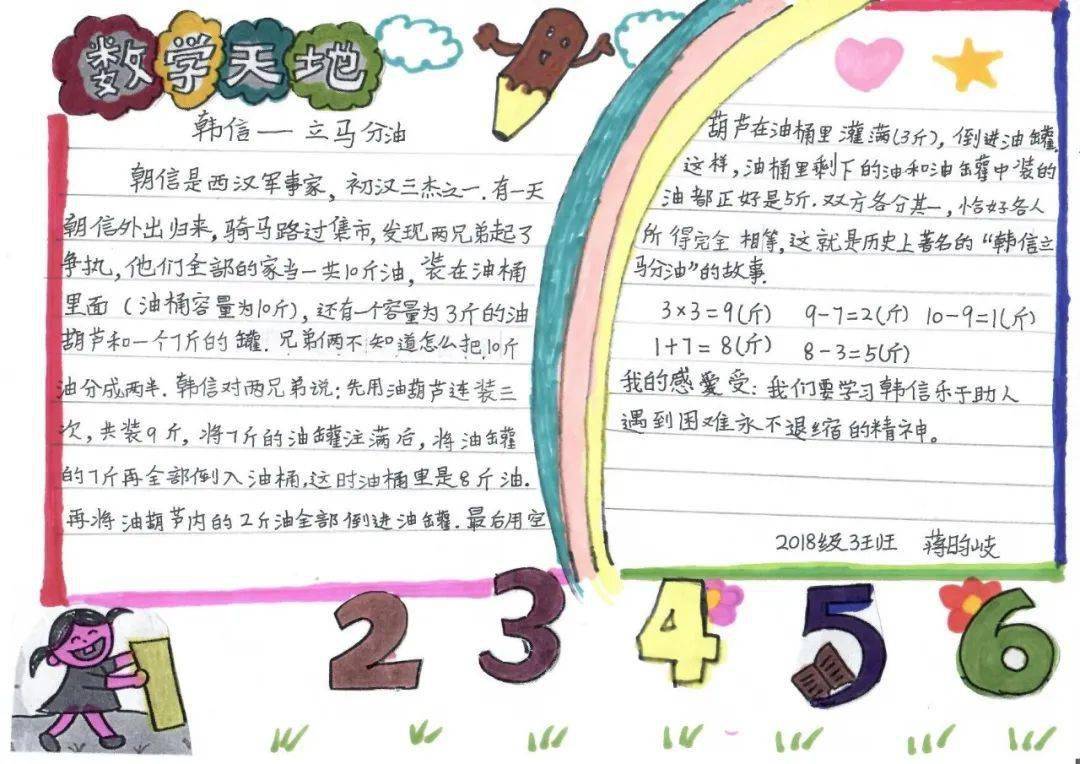 数学天地
韩信——立马分油
朝信是西汉军事家，初汉三杰之一.有一天
朝信外出归来,骑马路过集市,发现两兄弟起了
争执,他们全部的家当一共10斤油,装在油桶
里面（油桶容量为10斤),还有一个容量为3斤的油
葫芦和一个7斤的罐.兄弟俩不知道怎么把10斤
油分成两半.韩信对两兄弟说:先用油葫芦连装三
次,共装9斤,将7斤的油罐注满后,将油罐
的7斤再全部倒入油桶,这时油桶里是8斤油.
再将油葫芦内的2斤油全部倒进油罐.最后用空
葫芦在油桶里灌满(3斤),倒进油罐.
这样,油桶里剩下的油和油罐中装的
油都正好是5斤.双方各分其一,恰好各人
所得完全相等,这就是历史上著名的“韩信立
马分油”的故事.
3×3=9(斤) 9-7=2(斤) 10-9=1(斤)
1+7=8(斤) 8-3=5(斤)
我的感爱受:我们要学习韩信乐于助人
遇到困难永不退缩的精神。
2018级3班 蒋昀岐
2 3 4 5 6